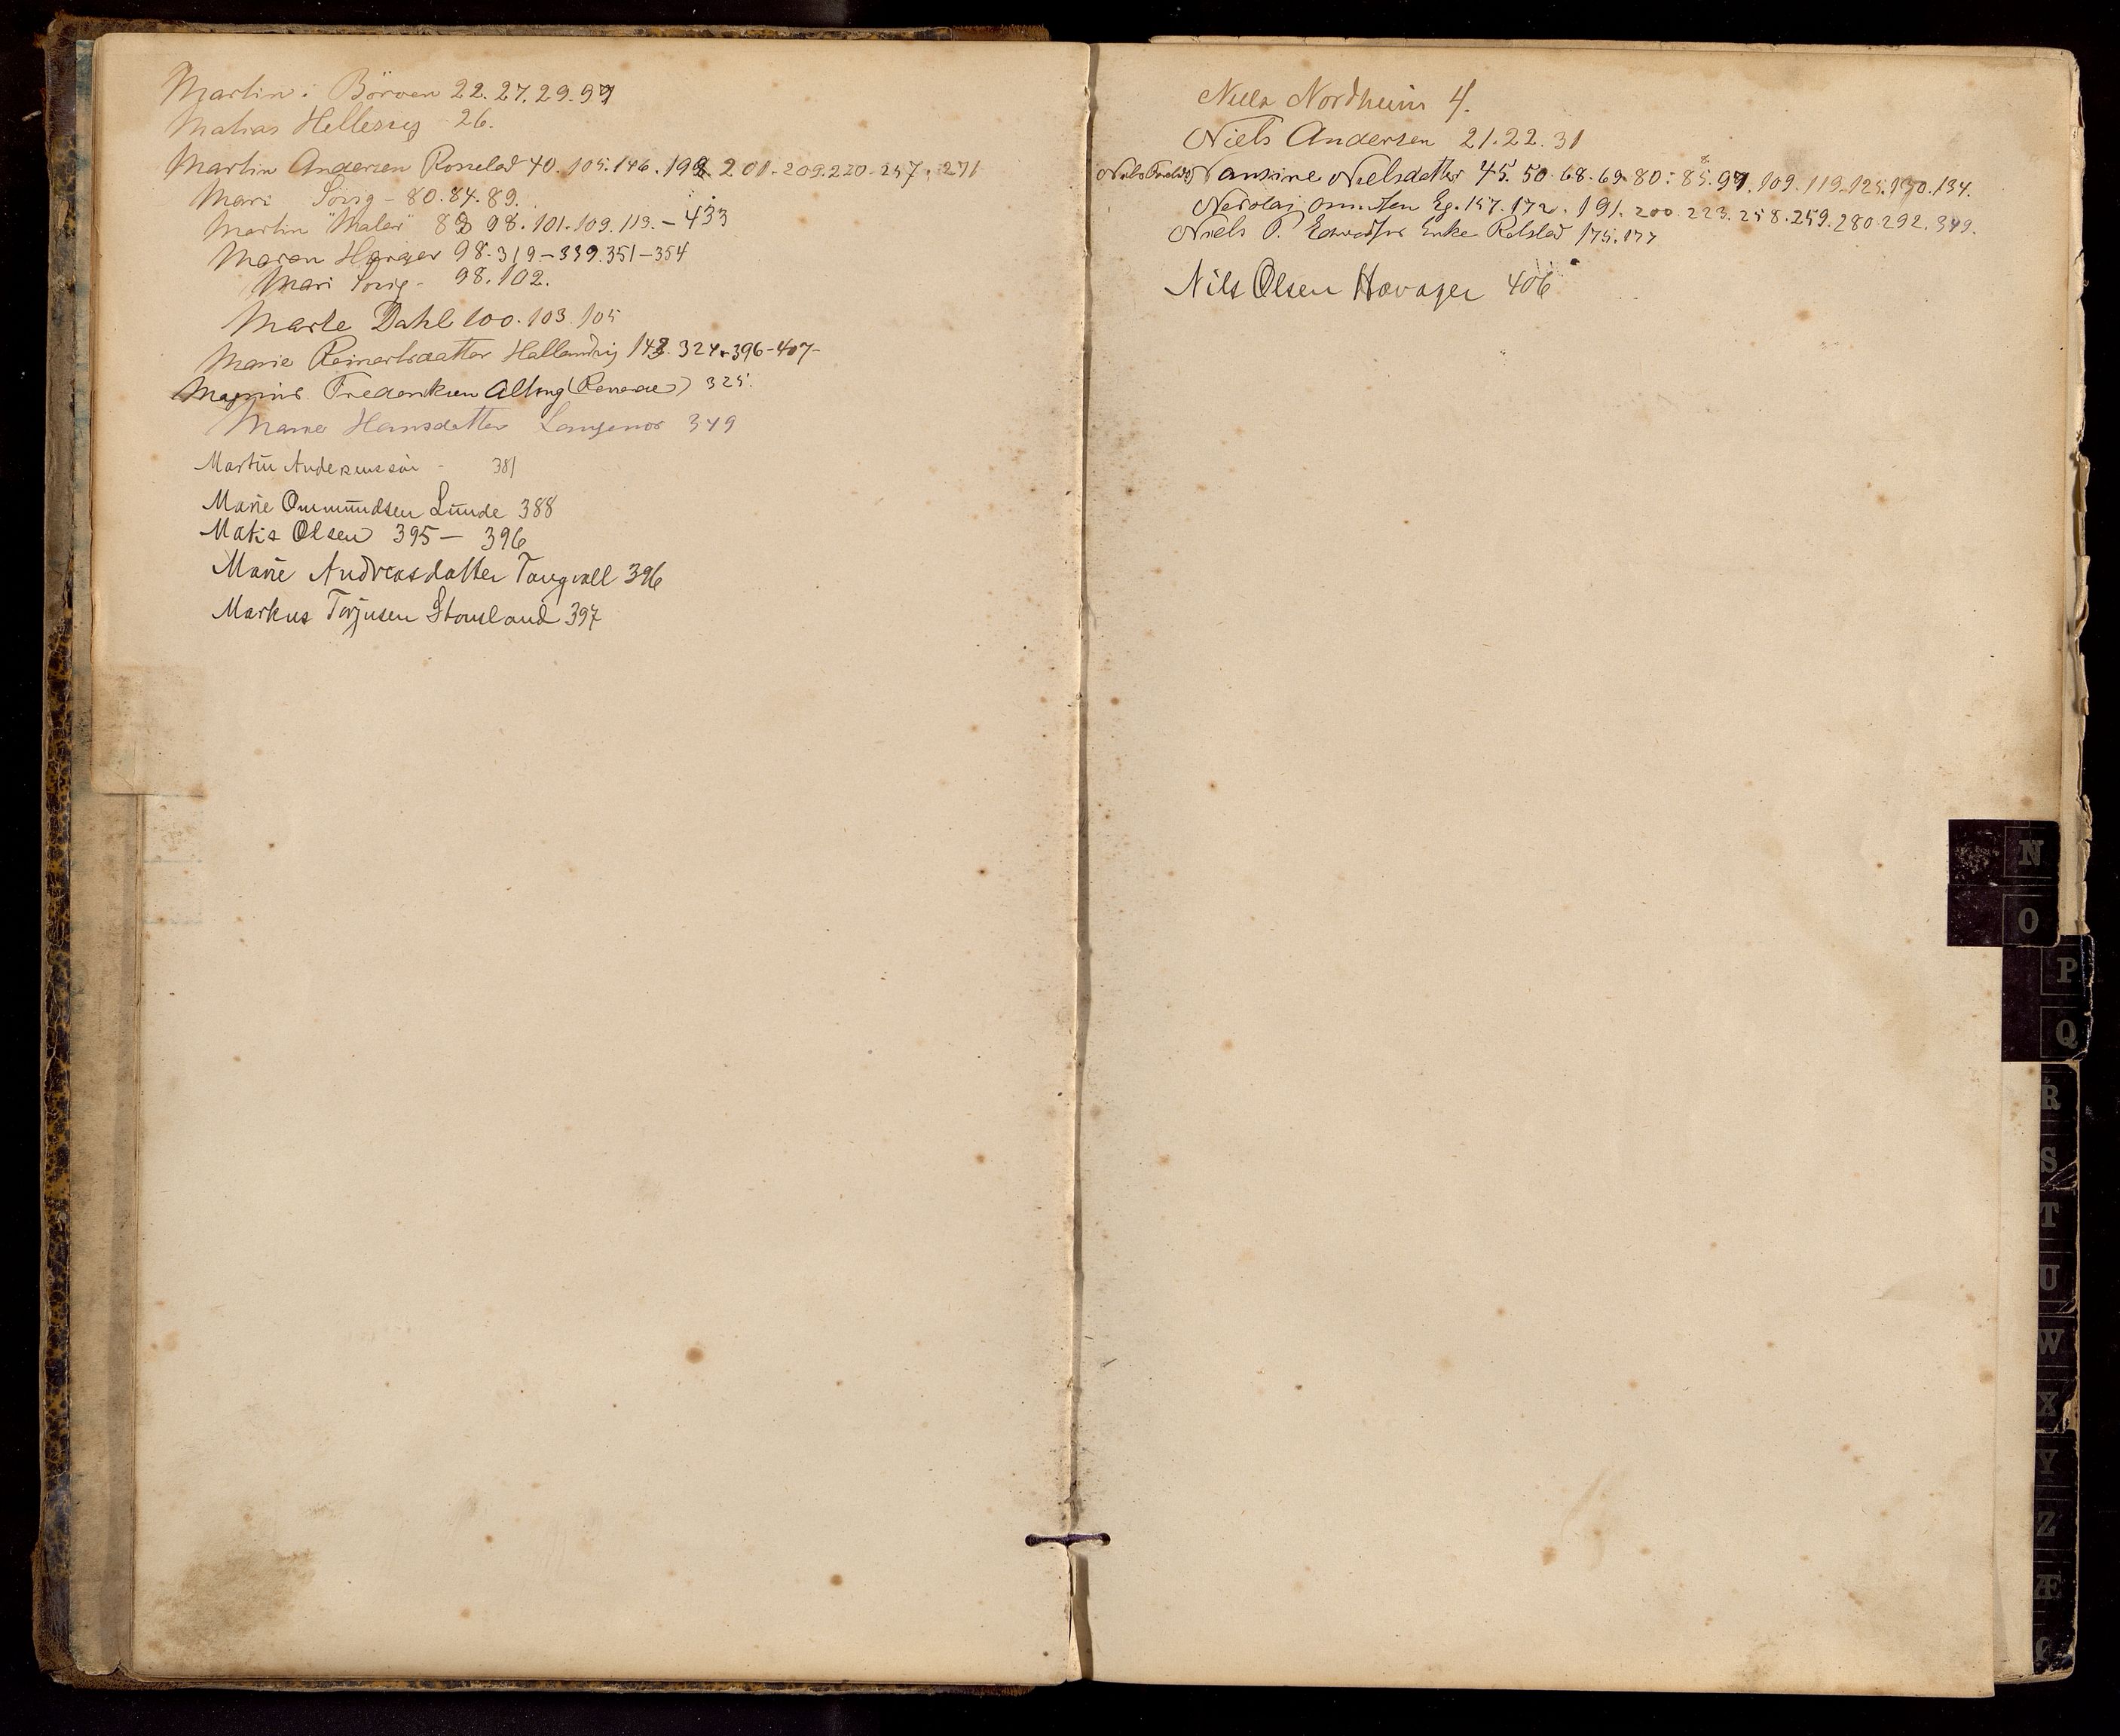 Martin i Börven 22. 27. 29. 97
Matias Hellesvig 26.
Martin Andersen Rosselad 40. 105. 146. 199. 201. 209. 220. 257. 271
Mari Sörig - 80. 84. 89.
Martin "Maler" 83 98. 101. 109. 113. - 433
Maren Havager 98. 319 - 339. 351 - 354
Mari Sörig - 98. 102.
Marte Dahl 100. 103. 105
Marie Reinertsdatter Hallandvig 148. 324. - 396 - 407 -
Magnus Frederiksen 325.
Marie Hansdatter Langenes 349
Martin Andersenssön - 381
Marie Ommundsen Lunde 388
Matis Olsen 395 - 396
Marie Andreasdatter Tangvall 396
Markus Torjusen Stousland 397
Niels Nordheim 4.
Niels Andersen 21. 22. 31
Nansine Nielsdatter 45. 50. 68. 69. 80. 85. 97. 109. 119. 125. 130. 134.
Nicolai Eg. 157. 172. 191. 200. 223. 258. 259. 280. 292. 349.
Niels P. Enke Rolslad 175. 177
Nils Olsen Havager 406
N
O
P
Q
R
S
T
U
W
X
Y
Z
Æ